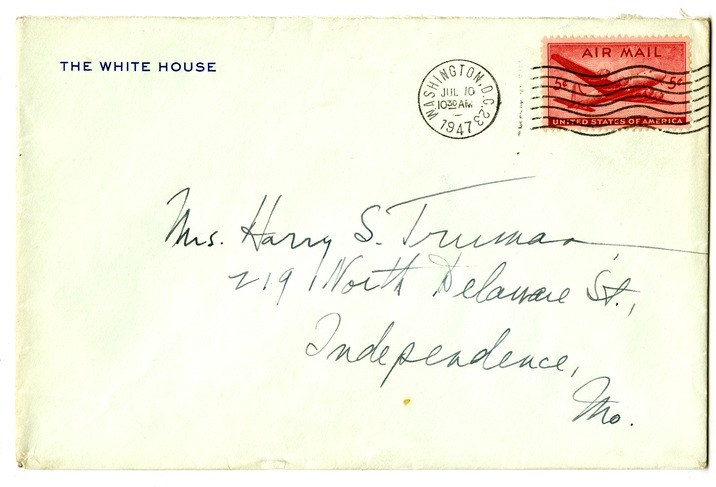 THE WHITE HOUSE
WASHINGTON, D.C. 23
JUL 10
10 30 AM
1947
AIR MAIL
5¢ 5¢
UNITED STATES OF AMERICA
Mrs. Harry S. Truman,
219 North Delaware St.,
Independence,
Mo.